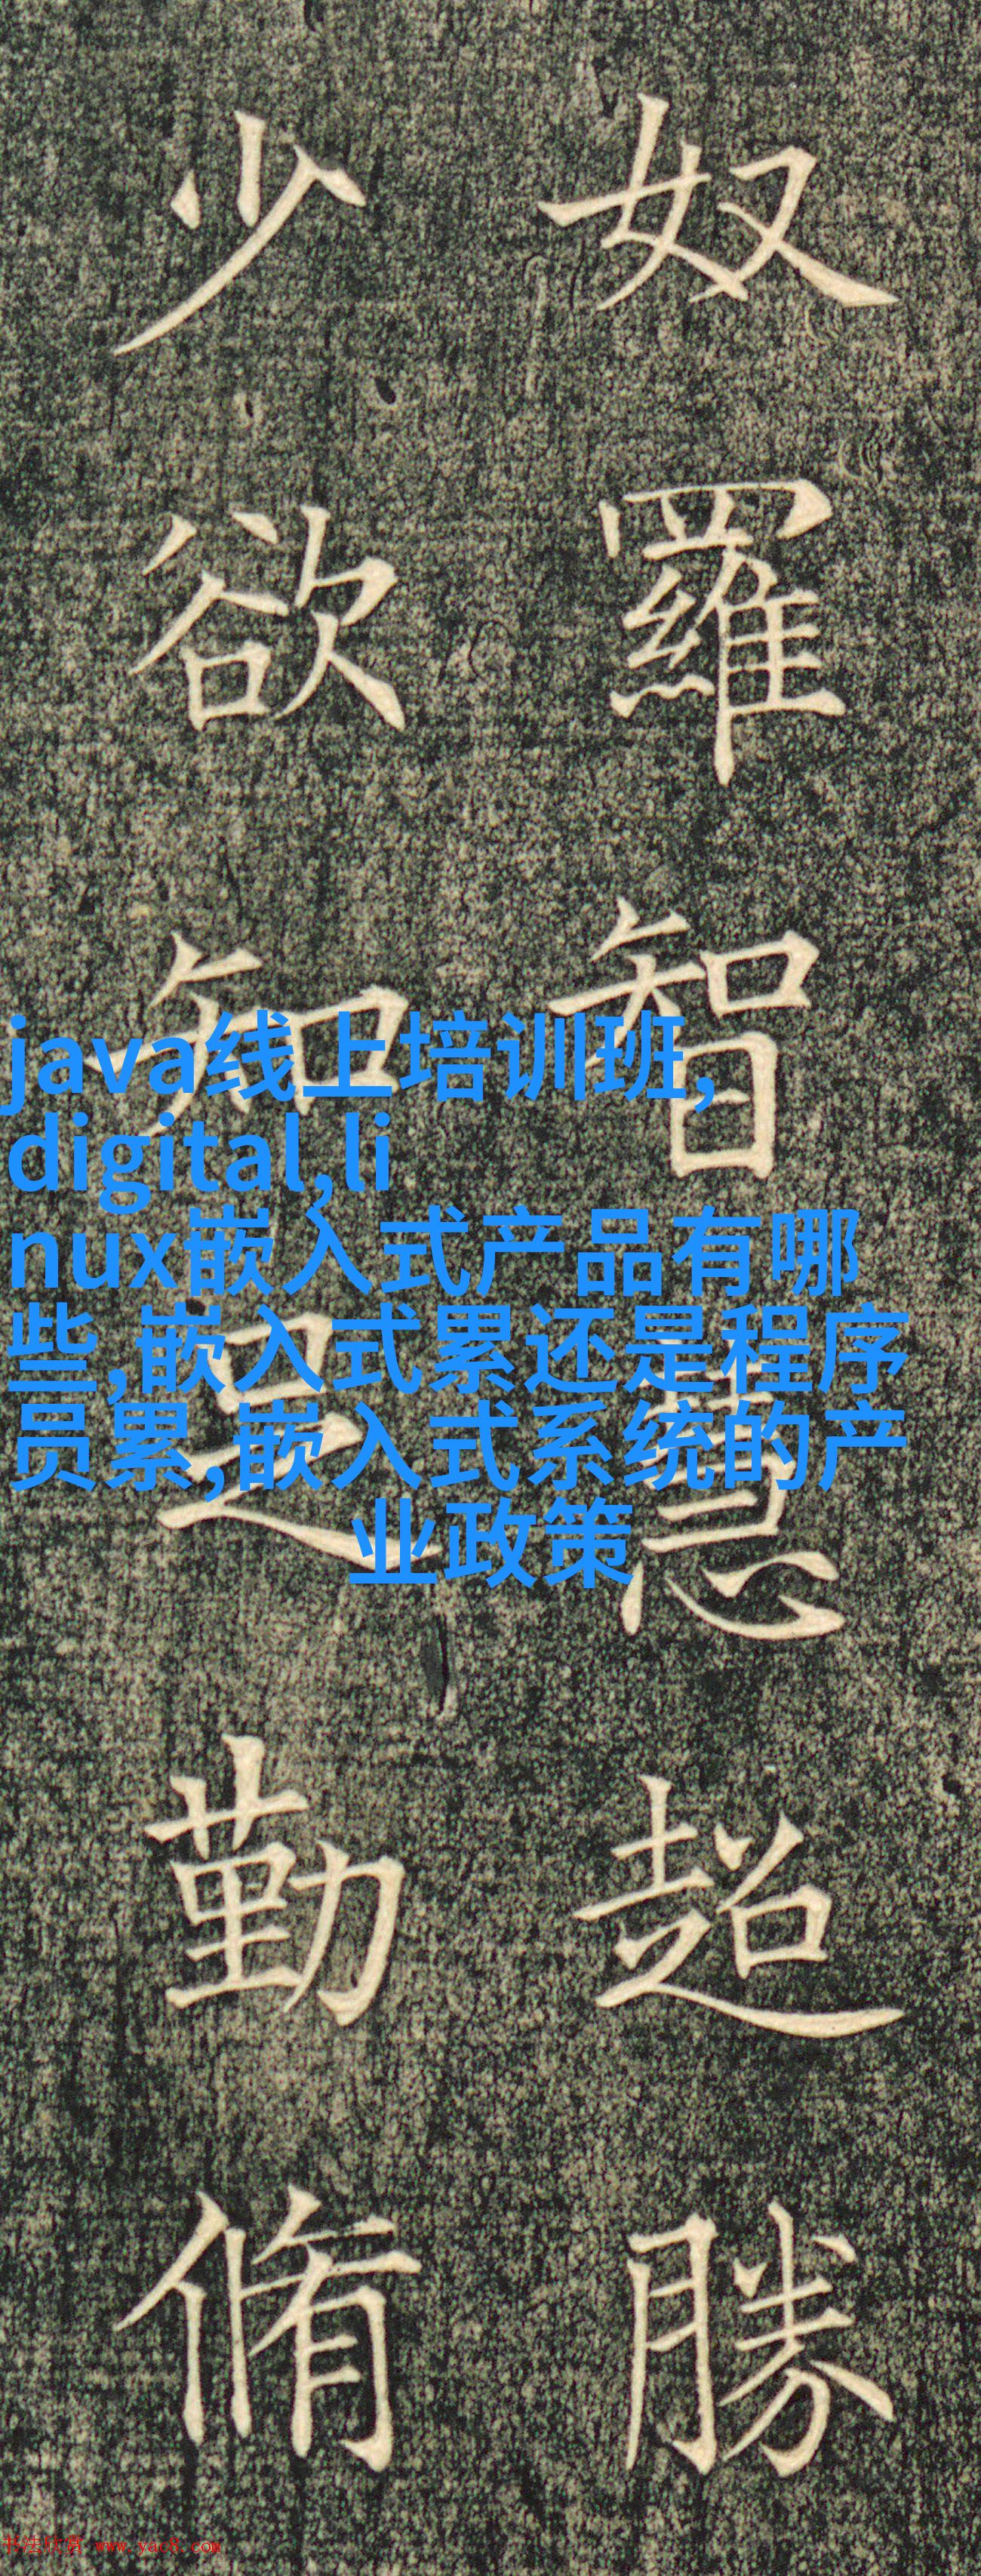 奴羅智慧超勝
少欲知足勤脩
java线上培训班,
digital,li
nux嵌入式产品有哪
些,嵌入式累还是程序
员累,嵌入式系统的产
业政策
书法欣赏 www.yac8.com